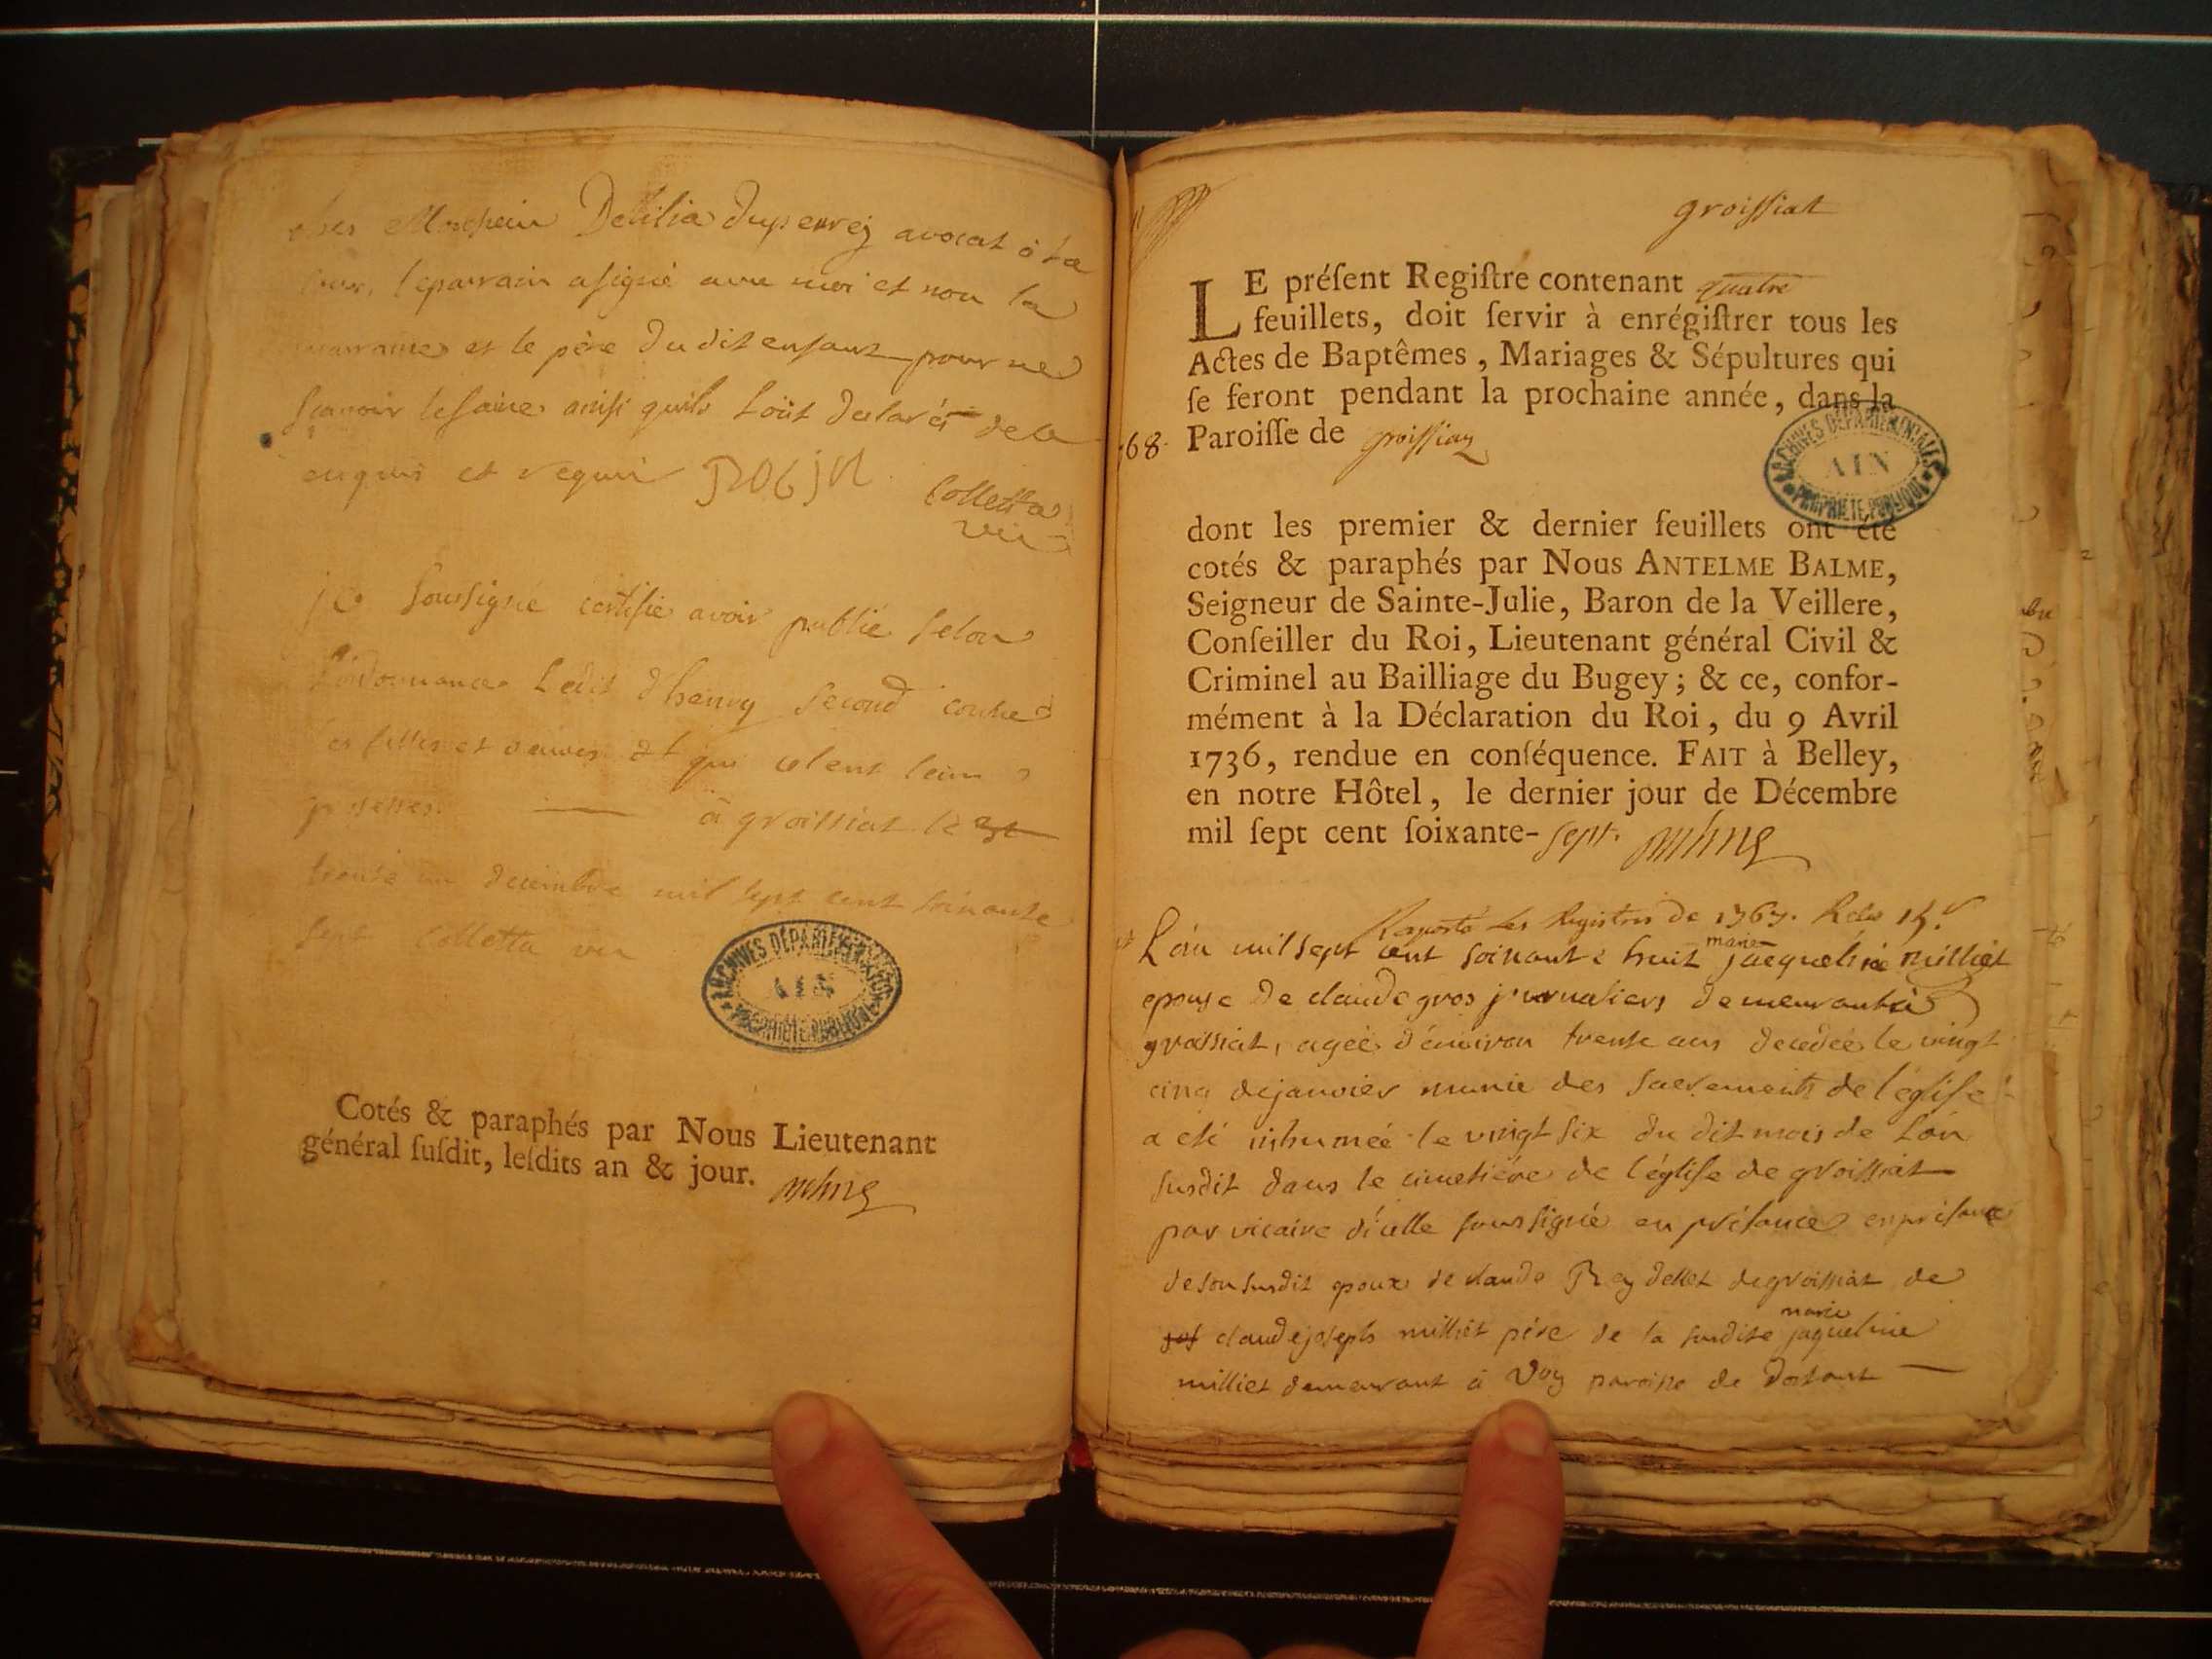 ches Monsieur Delilia Duperrej avocat à la
cour, le parrain a signé avec moi et non la
marraine et le père du dit enfant pour ne
scavoir le faire ainsi quils l'oüt declarés de ce
enquis et requis ROGJN Colletta
vic
je soussigné certifie avoir publié selon
l'ordonnance l'edit d'henry second contre
les filles et veuves et qui celent leurs
grosesses. — à groissiat le 31
trente un decembre mil sept cent soixante
sept Colletta vic
ARCHIVES DÉPARTEMENTALES
AIN
PROPRIÉTÉ PUBLIQUE
Cotés & paraphés par Nous Lieutenant
général ſuſdit, leſdits an & jour.
groissiat
LE préſent Regiſtre contenant quatre
feuillets, doit ſervir à enrégiſtrer tous les
Actes de Baptêmes, Mariages & Sépultures qui
ſe feront pendant la prochaine année, dans la
68. Paroiſſe de groissiaz
ARCHIVES DÉPARTEMENTALES
AIN
PROPRIÉTÉ PUBLIQUE
dont les premier & dernier feuillets ont été
cotés & paraphés par Nous ANTELME BALME,
Seigneur de Sainte-Julie, Baron de la Veillere,
Conſeiller du Roi, Lieutenant général Civil &
Criminel au Bailliage du Bugey; & ce, confor-
mément à la Déclaration du Roi, du 9 Avril
1736, rendue en conſéquence. FAIT à Belley,
en notre Hôtel, le dernier jour de Décembre
mil ſept cent ſoixante-sept.
Raporté les Registres de 1767.
marie
L'an mil sept cent soixante huit jacqueline milliet
epouse de claude gros journaliers demeurant à
groissiat, agée d'environ trente ans decedée le vingt
cinq de janvier munie des sacrements de l'église
a eté inhumée le vingt six du dit mois de l'an
susdit dans le cimetiére de l'église de groissiat
par vicaire d'icelle soussigné en présance en présance
de son susdit epoux de claude Reydellet de groissiat de
marie
jos claude joseph milliet pére de la susdite jaqueline
milliet demeurant à Voy paroisse de dortant —